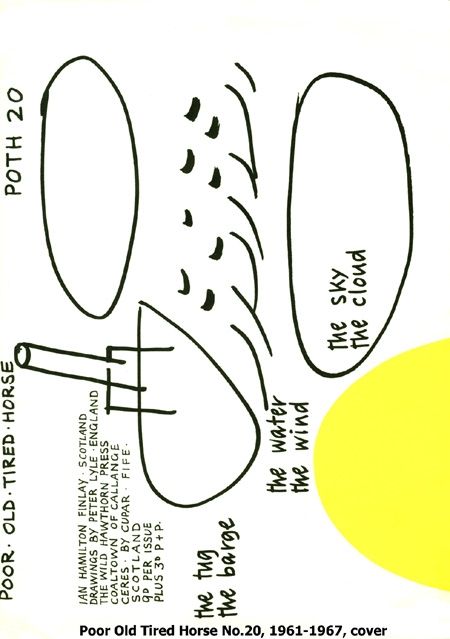 POOR·OLD·TIRED·HORSE
POTH 20
IAN HAMILTON FINLAY·SCOTLAND
DRAWINGS BY PETER LYLE·ENGLAND
THE WILD HAWTHORN PRESS
COALTOWN OF CALLANGE
CERES·BY CUPAR·FIFE·
SCOTLAND
9D PER ISSUE
PLUS 3D P+P.
the tug
the barge
the water
the wind
the sky
the cloud
Poor Old Tired Horse No.20, 1961-1967, cover